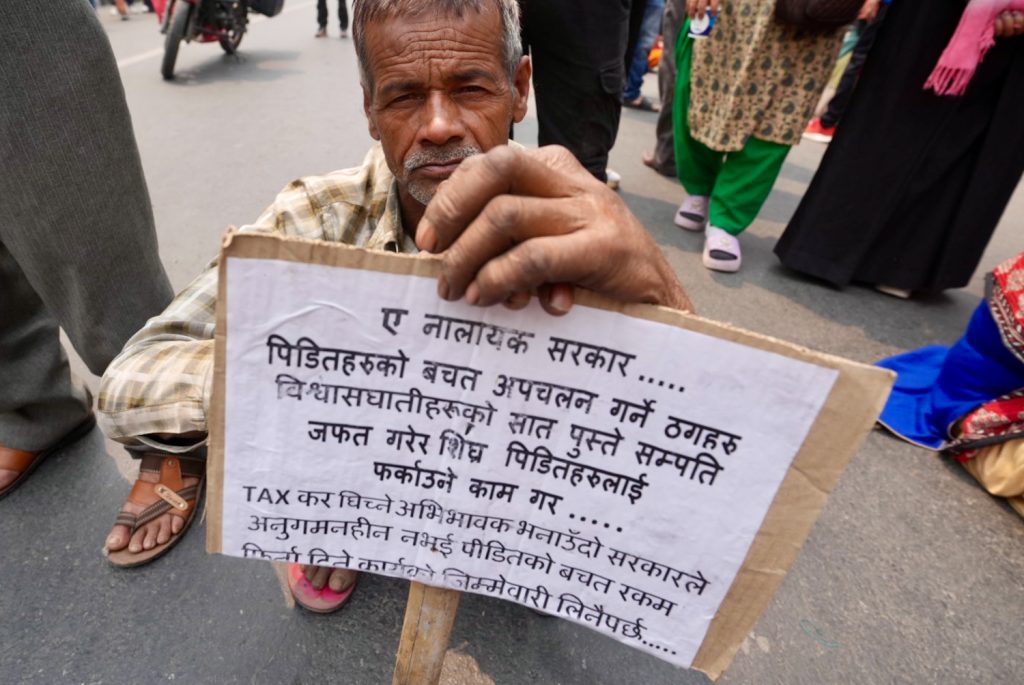 ए नालायक सरकार .....
पिडितहरुको बचत अपचलन गर्ने ठगहरु
विश्वासघातीहरूको सात पुस्ते सम्पति
जफत गरेर शिघ्र पिडितहरुलाई
फर्काउने काम गर .....
TAX कर घिच्ने अभिभावक भनाउँदो सरकारले
अनुगमनहीन नभई पीडितको बचत रकम
फिर्ता दिने कार्यको जिम्मेवारी लिनैपर्छ.....